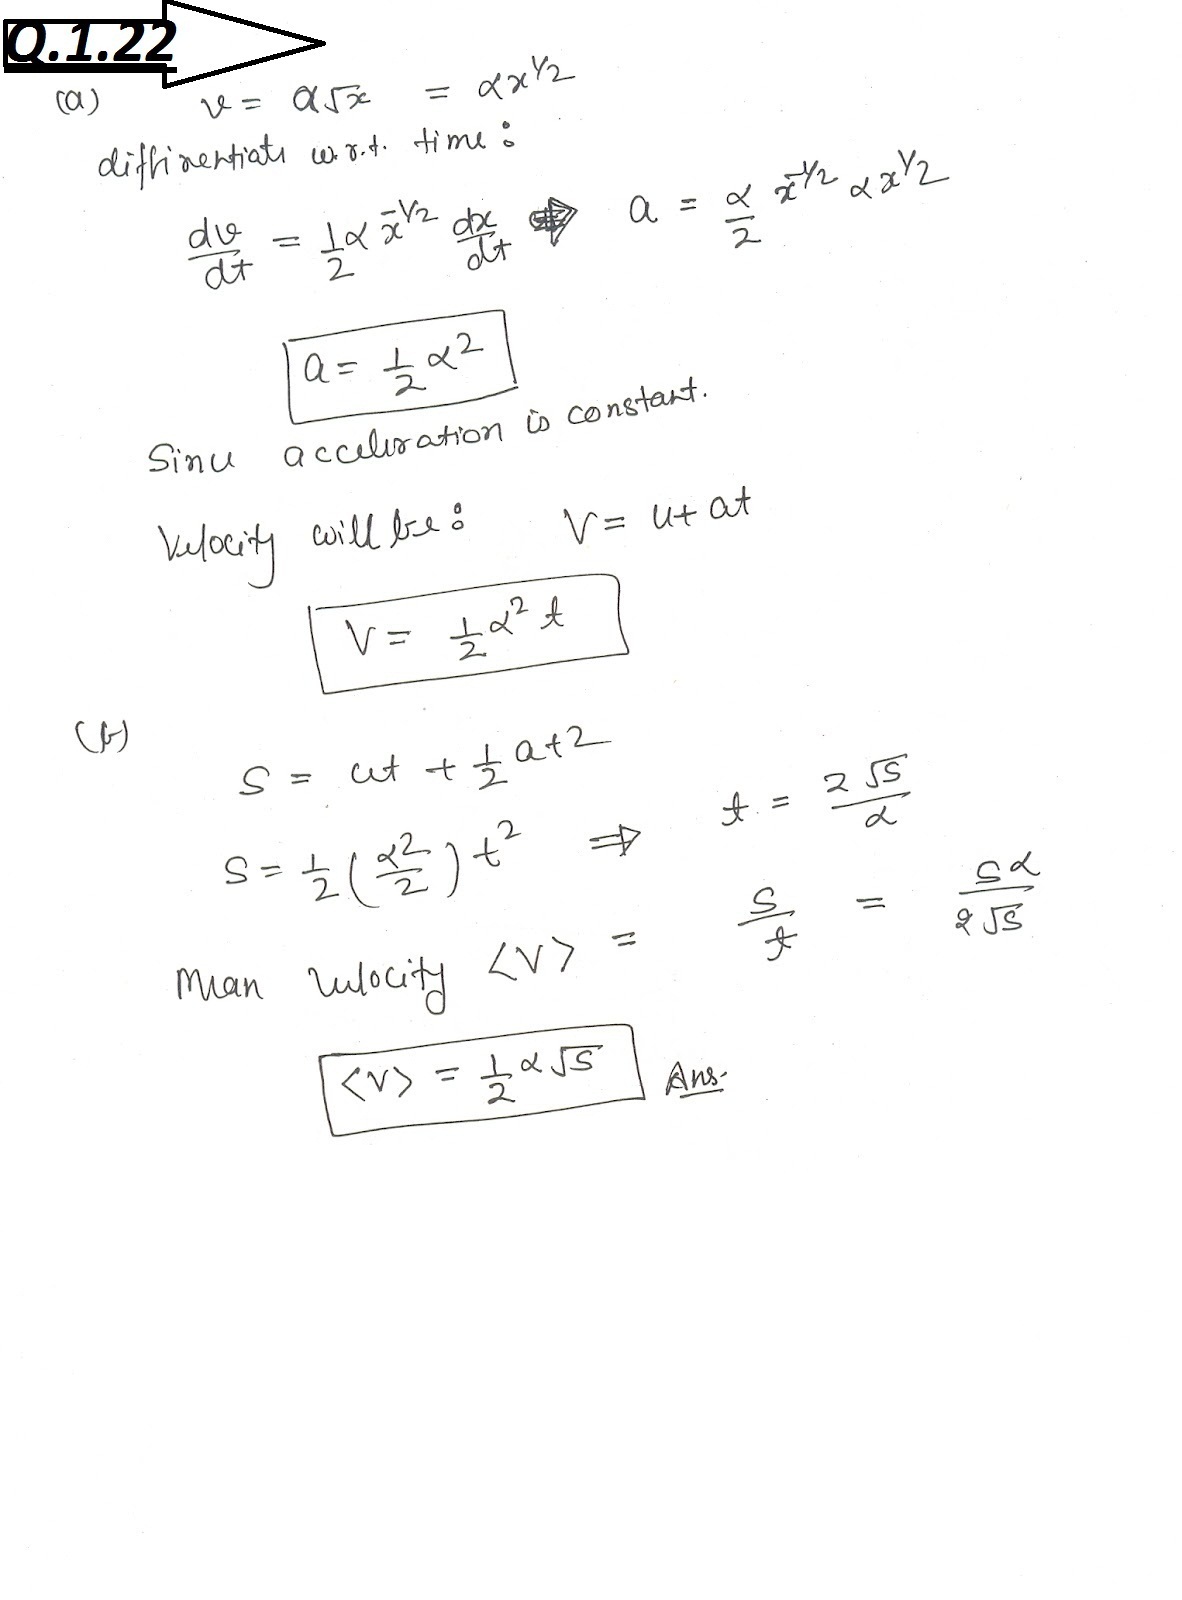 Q.1.22
(a) v = α√x = αx^1/2
diffirentiate w.r.t. time :
dv/dt = 1/2 α x^-1/2 dx/dt ⇒ a = α/2 x^-1/2 αx^1/2
a = 1/2 α^2
Since acceleration is constant.
Velocity will be : V = u + at
V = 1/2 α^2 t
(b)
S = ut + 1/2 at2
S = 1/2 (α^2/2) t^2 ⇒ t = 2√S/α
Mean Velocity <V> = S/t = Sα/2√S
<V> = 1/2 α√S Ans.